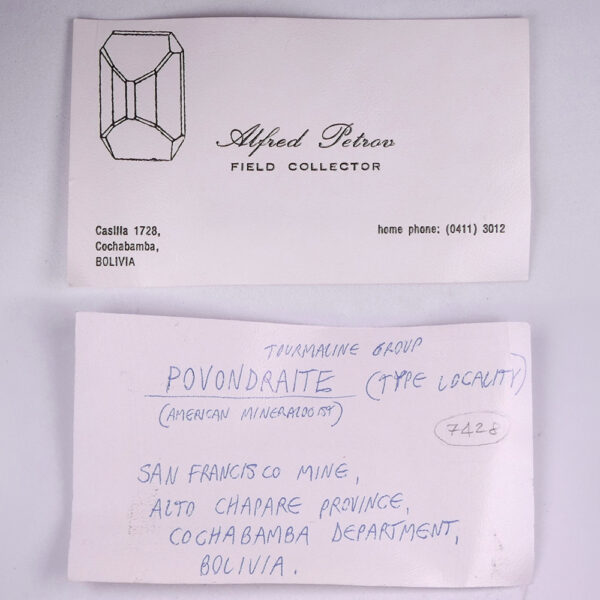 Alfred Petrov
FIELD COLLECTOR
Casilla 1728,
Cochabamba,
BOLIVIA
home phone: (0411) 3012
TOURMALINE GROUP
POVONDRAITE (TYPE LOCALITY)
(AMERICAN MINERALOGIST)
7428
SAN FRANCISCO MINE,
ALTO CHAPARE PROVINCE,
COCHABAMBA DEPARTMENT,
BOLIVIA.